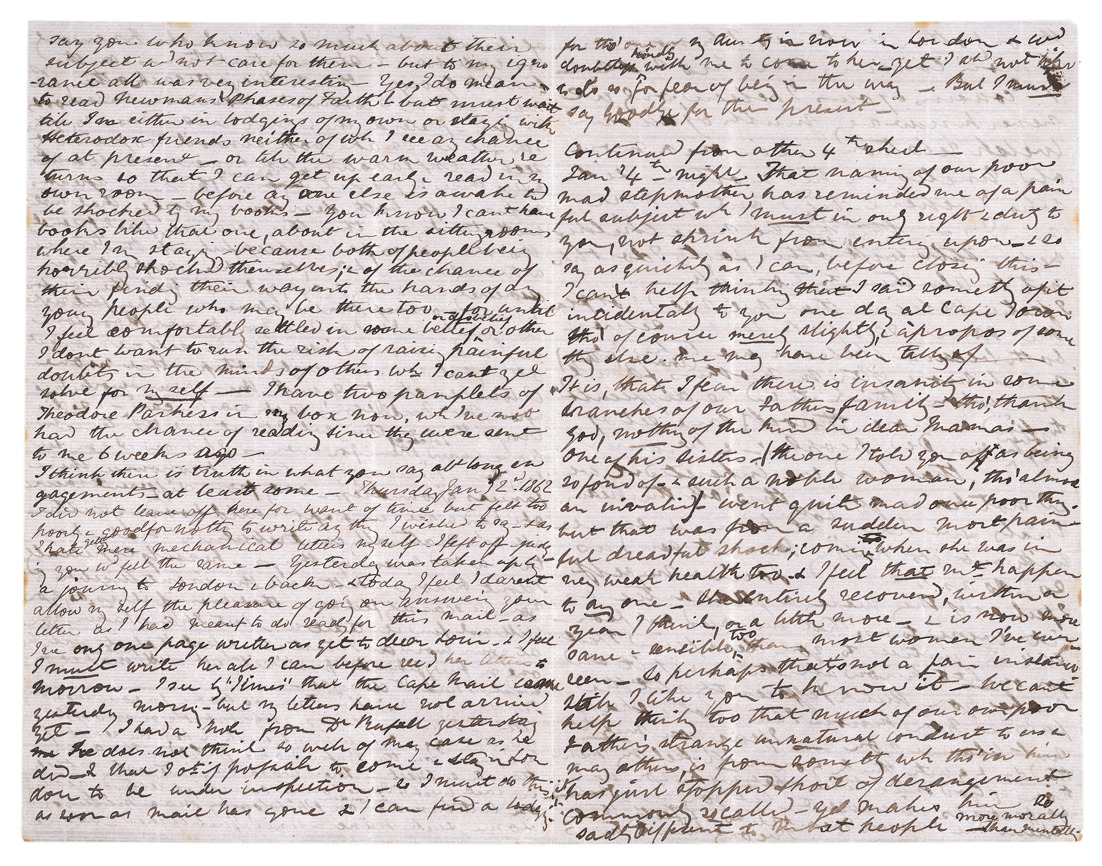 say you who know so much about their
subject wd not care for them – but to my igno
rance all was very interesting Yes, I do mean
to read Newman's Phases of Faith but must wait
till I'm either in lodgings of my own or staying with
Heterodox friends neither of wh I see any chance
of at present – or till the warm weather re
turns so that I can get up early & read in my
own room – before any one else is awake to
be shocked by my books – You know I can't have
books like that one, about in the sitting rooms
where I'm staying because both of people being
horribly shocked themselves, & of the chance of
their finding their way into the hands of any
young people who may be there too, for until
I feel comfortably settled in some better or other
I don't want to run the risk of raising painful
doubts in the minds of others wh I can't yet
solve for myself – I have two pamphlets of
Theodore Parker's in my box now, wh I've not
had the chance of reading since they were sent
to me 6 weeks ago –
I think there is truth in what you say abt long en
gagements – at least some – Thursday Jany 2d 1862
I did not leave off here for want of time but felt too
poorly & good for nothing to write any thing I wished to say & as
I hate mere mechanical letters myself I left off judg
ing you wd feel the same – Yesterday was taken up by
a journey to London & back & today I feel I daren't
allow myself the pleasure of going on answering your
letter as I had meant to do ready for this mail – as
I've only one page written as yet to dear & I feel
I must write her all I can before recg her letter to
morrow – I see by "Times" that the Cape Mail came
yesterday morng – but my letters have not arrived
yet – I had a note from Dr Russell yesterday
he does not think so well of my case as he
did – & that I ot if possible to come & stay in Lon
don to be under inspection – so I must do this
as soon as mail has gone & I can find a lodgg
for tho' my Aunt is now in London & wd
doubtless kindly wish me to come to her, yet I shd not like
to do so for fear of being in the way – But I must
say goodbye for the present –
Continued from other 4th sheet –
Jany 4th night. That naming of our poor
mad stepmother has reminded me of a pain
ful subject wh I must in only right & duty to
you, not shrink from entering upon – & so
say as quickly as I can, before closing this –
I can't help thinking that I said something of it
incidentally to you one day at Cape Town
tho' of course merely slightly, & apropos of some
thg else we may have been talkg of
It is, that I fear there is insanity in some
branches of our Father's family – tho', thank
God, nothing of the kind in dear Mama's –
One of his sisters – (the one I told you of as being
so fond of – & such a noble woman, tho' almost
an invalid) – went quite mad once poor thg –
but that was from a sudden most pain
ful dreadful shock, coming too when she was in
very weak health too & I feel that mt happen
to any one – She entirely recovered, within a
year I think, or a little more – & is now more
sane & sensible too, than most women I've ever
seen – So perhaps that's not a fair instance
still I like you to know it – We can't
help thinkg too that much of our own poor
Father's strange unnatural conduct to us &
many others, is from something wh tho' in him
has just stopped short of derangement
commonly so called – yet makes him so
sadly different to most people – more morally
than mentally –